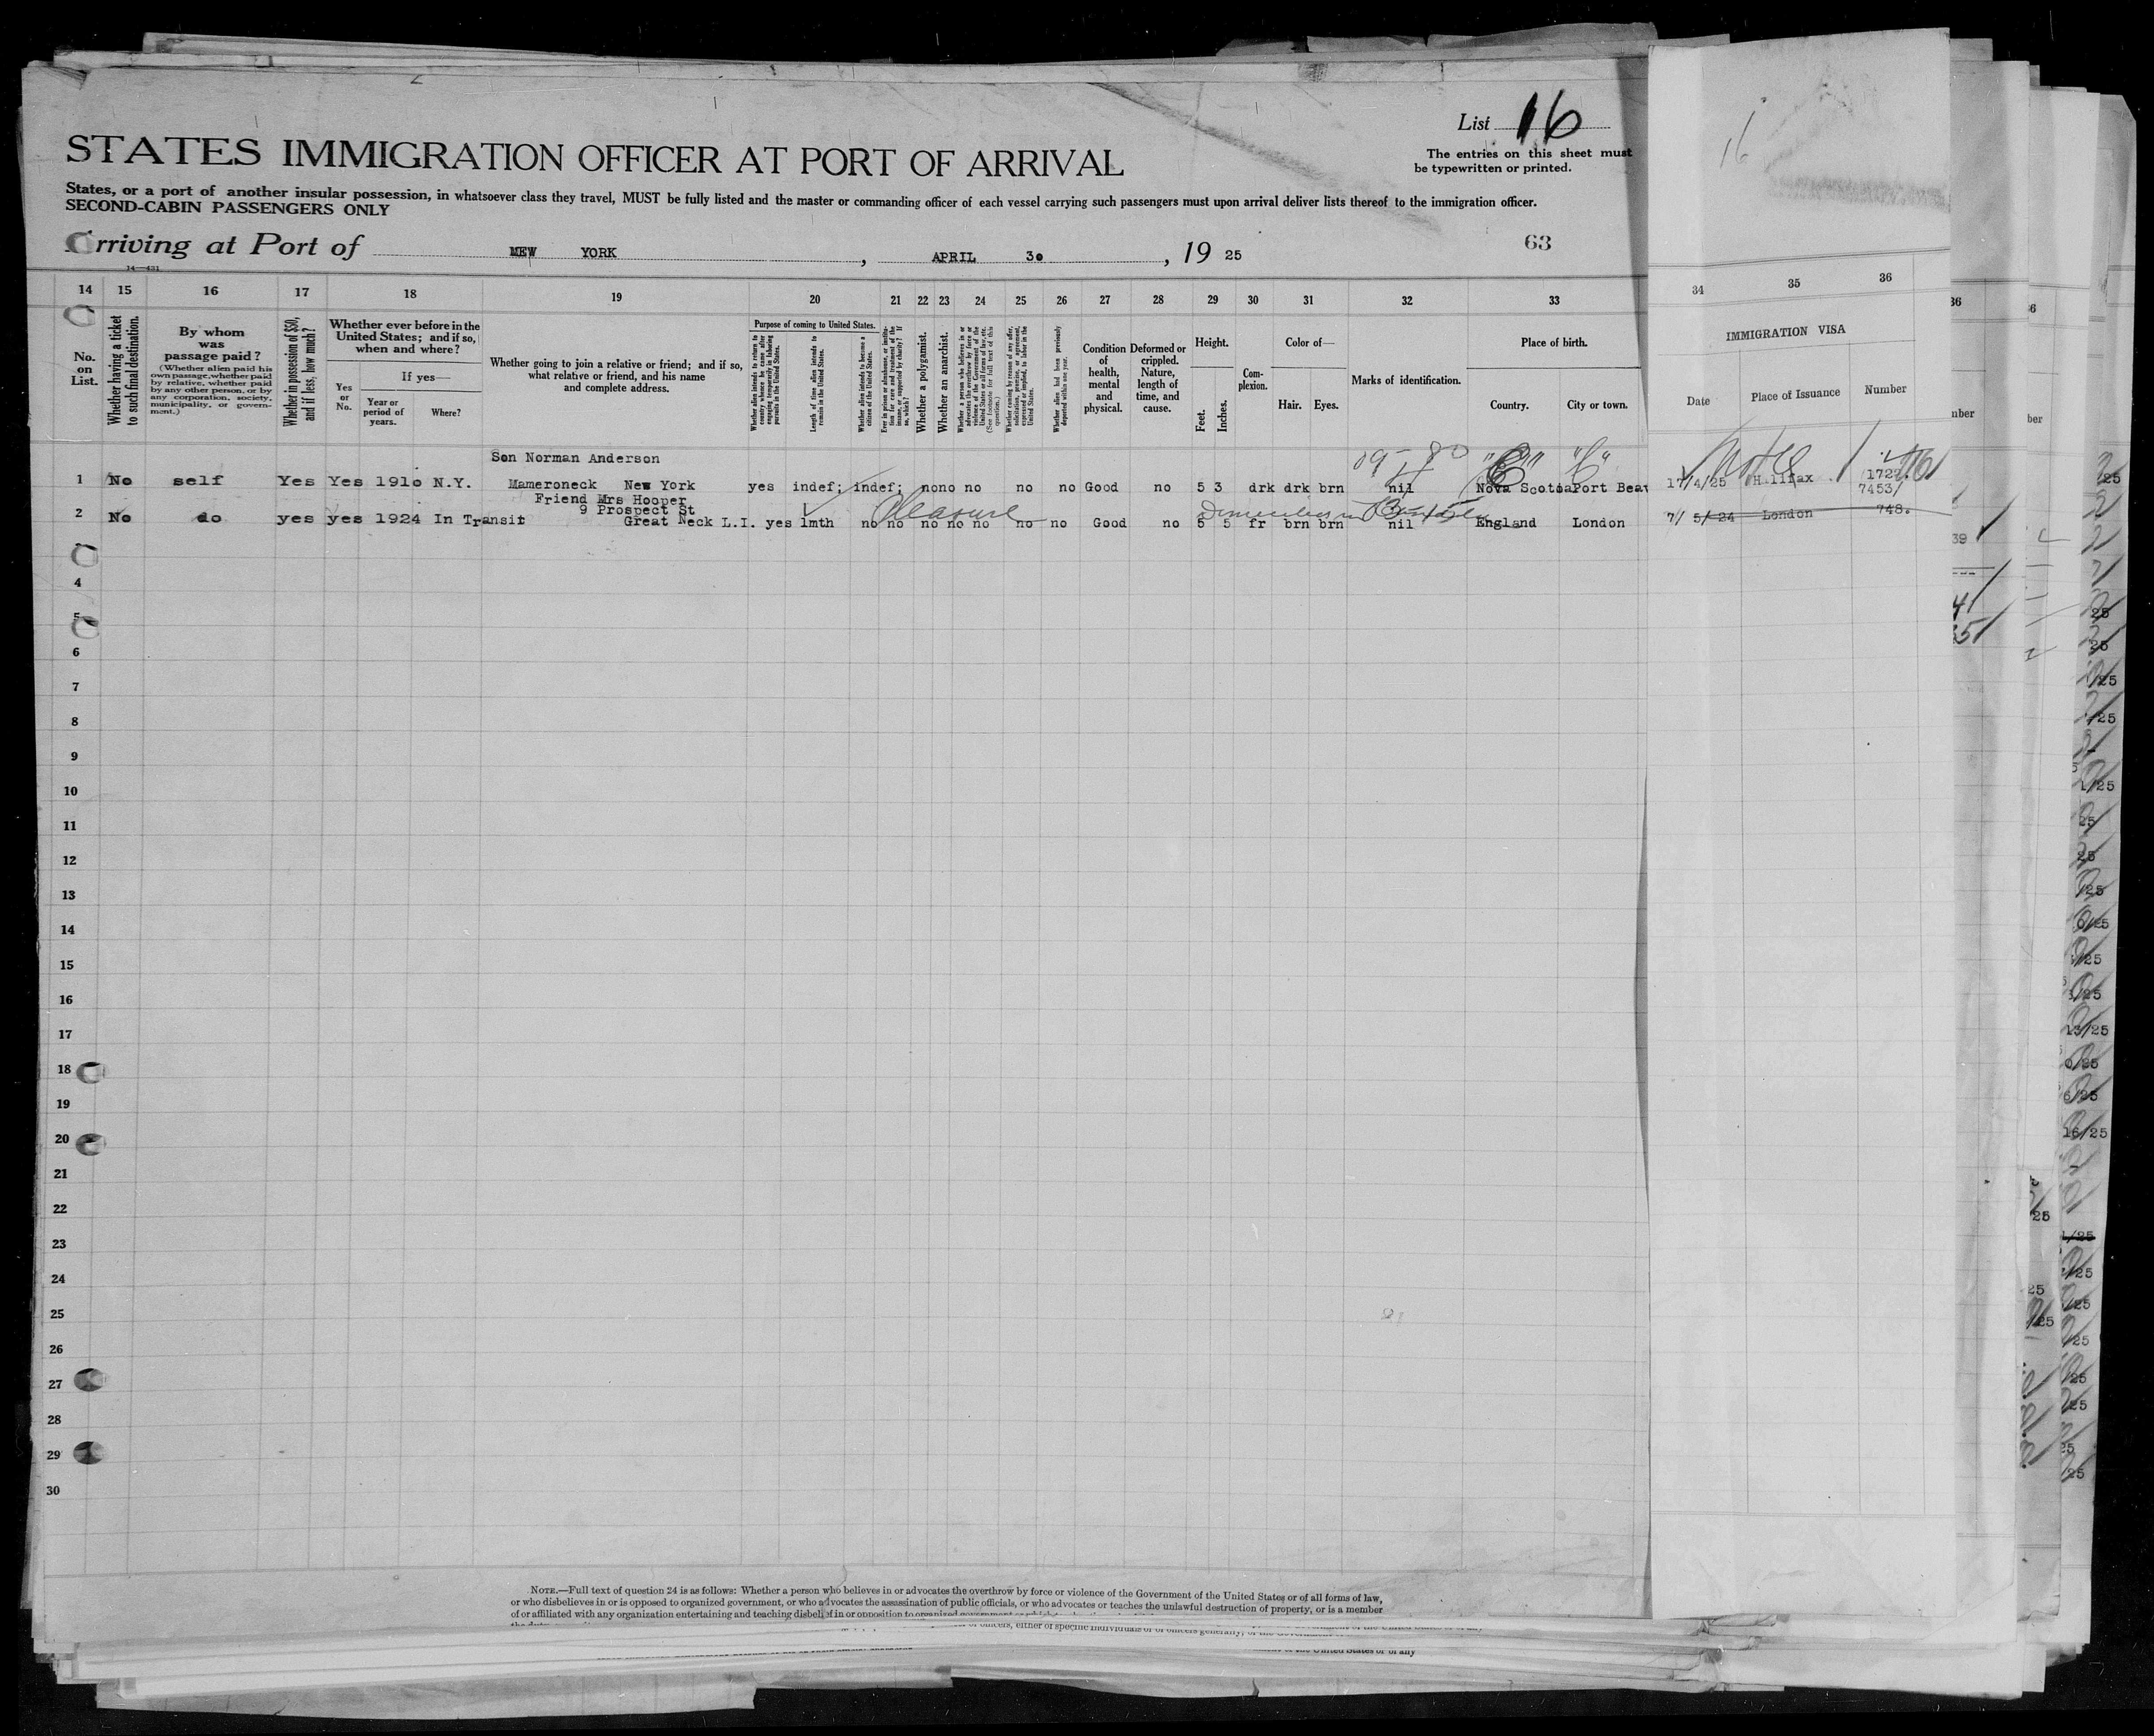 List 16
The entries on this sheet must
be typewritten or printed.
STATES IMMIGRATION OFFICER AT PORT OF ARRIVAL
States, or a port of another insular possession, in whatsoever class they travel, MUST be fully listed and the master or commanding officer of each vessel carrying such passengers must upon arrival deliver lists thereof to the immigration officer.
SECOND-CABIN PASSENGERS ONLY
rriving at Port of MEW YORK, APRIL 30, 19 25
63
16
14 15 16 17 18 19 20 21 22 23 24 25 26 27 28 29 30 31 32 33 34 35 36
No. on List.
Whether having a ticket to such final destination.
By whom was passage paid?
(Whether alien paid his own passage, whether paid by relative, whether paid by any other person, or by any corporation, society, municipality, or government.)
Whether in possession of $50, and if less, how much?
Whether ever before in the United States; and if so, when and where?
If yes—
Yes or No.
Year or period of years.
Where?
Whether going to join a relative or friend; and if so, what relative or friend, and his name and complete address.
Purpose of coming to United States.
Whether alien intends to return to country whence he came after engaging temporarily in laboring pursuits in the United States.
Length of time alien intends to remain in the United States.
Whether alien intends to become a citizen of the United States.
Whether a polygamist.
Whether an anarchist.
Condition of health, mental and physical.
Deformed or crippled. Nature, length of time, and cause.
Height.
Feet. Inches.
Complexion.
Color of—
Hair. Eyes.
Marks of identification.
Place of birth.
Country. City or town.
IMMIGRATION VISA
Date Place of Issuance Number
Son Norman Anderson
1 No self Yes Yes 1910 N.Y. Mameroneck New York yes indef; indef; no no no no no no Good no 5 3 drk drk brn nil Nova Scotia Port Bea 17/4/25 Halifax 172 7453/
Friend Mrs Hooper
9 Prospect St
2 No do yes yes 1924 In Transit Great Neck L.I. yes 1mth no no no no no no no Good no 5 5 fr brn brn nil England London 7/ 5/ 24 London 748.
Pleasure
4
5
6
7
8
9
10
11
12
13
14
15
16
17
18
19
20
21
22
23
24
25
26
27
28
29
30
NOTE.—Full text of question 24 is as follows: Whether a person who believes in or advocates the overthrow by force or violence of the Government of the United States or of all forms of law,
or who disbelieves in or is opposed to organized government, or who advocates the assassination of public officials, or who advocates or teaches the unlawful destruction of property, or is a member
of or affiliated with any organization entertaining and teaching disbelief in or opposition to organized government